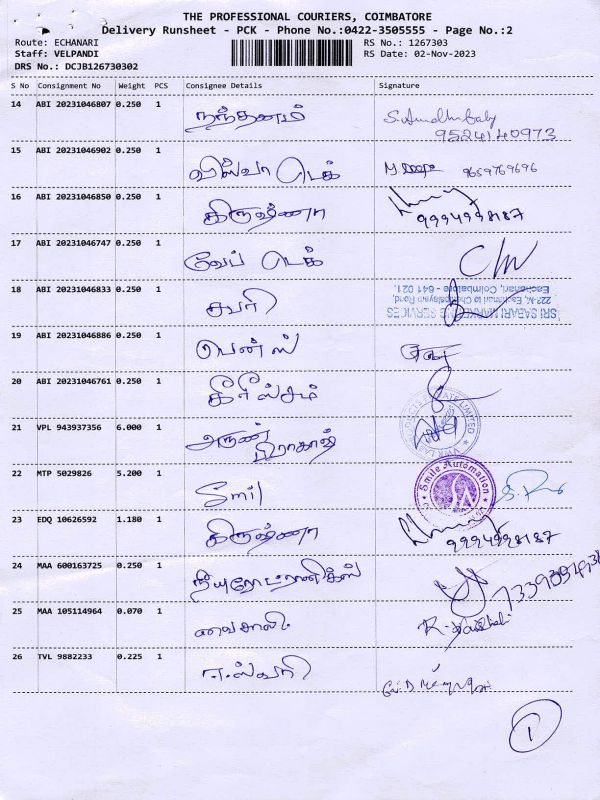 THE PROFESSIONAL COURIERS, COIMBATORE
Delivery Runsheet - PCK - Phone No.:0422-3505555 - Page No.:2
Route: ECHANARI RS No.: 1267303
Staff: VELPANDI RS Date: 02-Nov-2023
DRS No.: DCJB126730302
S No Consignment No Weight PCS Consignee Details Signature
14 ABI 20231046807 0.250 1 நந்தனம்
9524140973
15 ABI 20231046902 0.250 1 விஸ்வா டெக் 9659769696
16 ABI 20231046850 0.250 1 கிருஷ்ணா 9994998187
17 ABI 20231046747 0.250 1 வேப் டெக்
18 ABI 20231046833 0.250 1 சபரி
SRI SABARI MARKETING SERVICES
Eachanari, Coimbatore - 641 021.
19 ABI 20231046886 0.250 1 பென்ஸ்
20 ABI 20231046761 0.250 1
21 VPL 943937356 6.000 1 அருண்
பிரகாஷ்
22 MTP 5029826 5.200 1 Smil Smile Automation
23 EDQ 10626592 1.180 1 கிருஷ்ணா 9994998187
24 MAA 600163725 0.250 1
25 MAA 105114964 0.070 1 வைசாலி
26 TVL 9882233 0.225 1 ஈஸ்வரி
1